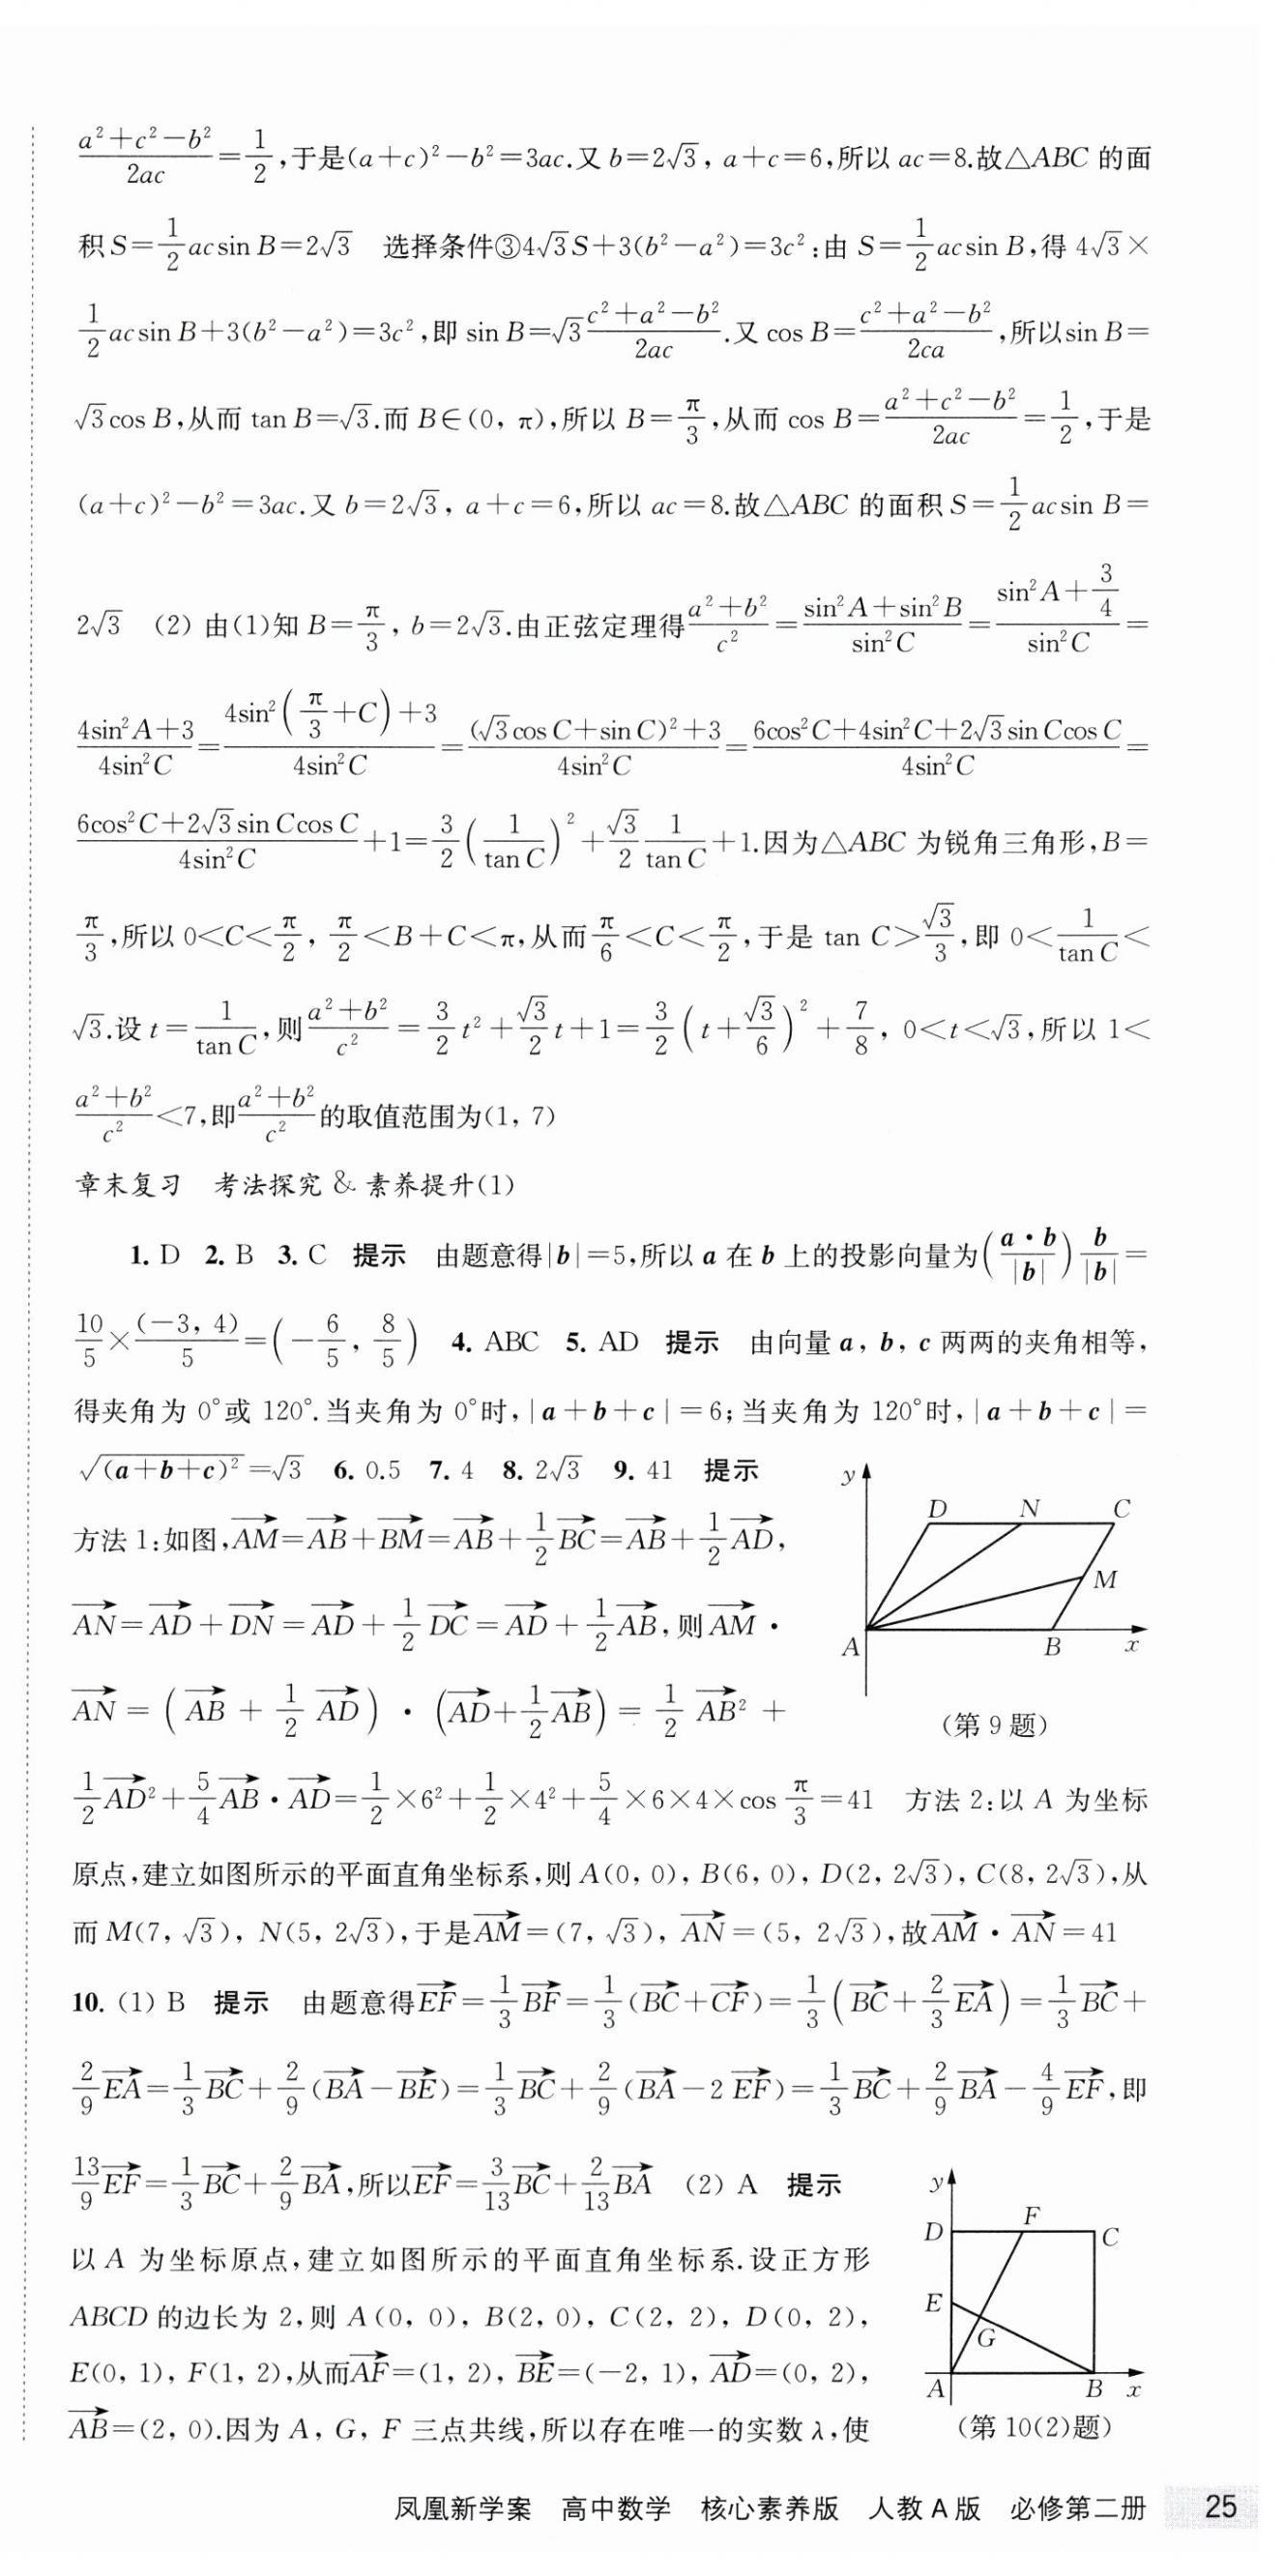 $\frac{a^2+c^2-b^2}{2ac}=\frac{1}{2}$,于是$(a+c)^2-b^2=3ac$.又 $b=2\sqrt{3}$, $a+c=6$,所以 $ac=8$.故△ABC 的面
积 $S=\frac{1}{2}ac\sin B=2\sqrt{3}$ 选择条件③$4\sqrt{3}S+3(b^2-a^2)=3c^2$:由 $S=\frac{1}{2}ac\sin B$,得 $4\sqrt{3}\times$
$\frac{1}{2}ac\sin B+3(b^2-a^2)=3c^2$,即 $\sin B=\sqrt{3}\frac{c^2+a^2-b^2}{2ac}$.又 $\cos B=\frac{c^2+a^2-b^2}{2ca}$,所以$\sin B=$
$\sqrt{3}\cos B$,从而 $\tan B=\sqrt{3}$.而 $B\in(0,\pi)$,所以 $B=\frac{\pi}{3}$,从而 $\cos B=\frac{a^2+c^2-b^2}{2ac}=\frac{1}{2}$,于是
$(a+c)^2-b^2=3ac$.又 $b=2\sqrt{3}$, $a+c=6$,所以 $ac=8$.故△ABC 的面积 $S=\frac{1}{2}ac\sin B=$
$2\sqrt{3}$ (2) 由(1)知 $B=\frac{\pi}{3}$, $b=2\sqrt{3}$.由正弦定理得$\frac{a^2+b^2}{c^2}=\frac{\sin^2A+\sin^2B}{\sin^2C}=\frac{\sin^2A+\frac{3}{4}}{\sin^2C}=$
$\frac{4\sin^2A+3}{4\sin^2C}=\frac{4\sin^2\left(\frac{\pi}{3}+C\right)+3}{4\sin^2C}=\frac{(\sqrt{3}\cos C+\sin C)^2+3}{4\sin^2C}=\frac{6\cos^2C+4\sin^2C+2\sqrt{3}\sin C\cos C}{4\sin^2C}=$
$\frac{6\cos^2C+2\sqrt{3}\sin C\cos C}{4\sin^2C}+1=\frac{3}{2}\left(\frac{1}{\tan C}\right)^2+\frac{\sqrt{3}}{2}\frac{1}{\tan C}+1$.因为△ABC 为锐角三角形,$B=$
$\frac{\pi}{3}$,所以 $0<C<\frac{\pi}{2}$, $\frac{\pi}{2}<B+C<\pi$,从而$\frac{\pi}{6}<C<\frac{\pi}{2}$,于是 $\tan C>\frac{\sqrt{3}}{3}$,即 $0<\frac{1}{\tan C}<$
$\sqrt{3}$.设 $t=\frac{1}{\tan C}$,则$\frac{a^2+b^2}{c^2}=\frac{3}{2}t^2+\frac{\sqrt{3}}{2}t+1=\frac{3}{2}\left(t+\frac{\sqrt{3}}{6}\right)^2+\frac{7}{8}$, $0<t<\sqrt{3}$,所以 $1<$
$\frac{a^2+b^2}{c^2}<7$,即$\frac{a^2+b^2}{c^2}$的取值范围为(1, 7)
章末复习 考法探究 & 素养提升(1)
1. D 2. B 3. C 提示 由题意得$|b|=5$,所以 a 在 b 上的投影向量为$\left(\frac{a\cdot b}{|b|}\right)\frac{b}{|b|}=$
$\frac{10}{5}\times\frac{(-3,4)}{5}=\left(-\frac{6}{5},\frac{8}{5}\right)$ 4. ABC 5. AD 提示 由向量 a, b, c 两两的夹角相等,
得夹角为 0°或 120°.当夹角为 0°时,$|a+b+c|=6$;当夹角为 120°时,$|a+b+c|=$
$\sqrt{(a+b+c)^2}=\sqrt{3}$ 6. 0.5 7. 4 8. $2\sqrt{3}$ 9. 41 提示
方法 1:如图,$\overrightarrow{AM}=\overrightarrow{AB}+\overrightarrow{BM}=\overrightarrow{AB}+\frac{1}{2}\overrightarrow{BC}=\overrightarrow{AB}+\frac{1}{2}\overrightarrow{AD}$,
$\overrightarrow{AN}=\overrightarrow{AD}+\overrightarrow{DN}=\overrightarrow{AD}+\frac{1}{2}\overrightarrow{DC}=\overrightarrow{AD}+\frac{1}{2}\overrightarrow{AB}$,则$\overrightarrow{AM}\cdot$
$\overrightarrow{AN}=\left(\overrightarrow{AB}+\frac{1}{2}\overrightarrow{AD}\right)\cdot\left(\overrightarrow{AD}+\frac{1}{2}\overrightarrow{AB}\right)=\frac{1}{2}\overrightarrow{AB}^2+$
y
D N C
M
A B x
(第 9 题)
$\frac{1}{2}\overrightarrow{AD}^2+\frac{5}{4}\overrightarrow{AB}\cdot\overrightarrow{AD}=\frac{1}{2}\times6^2+\frac{1}{2}\times4^2+\frac{5}{4}\times6\times4\times\cos\frac{\pi}{3}=41$ 方法 2:以 A 为坐标
原点,建立如图所示的平面直角坐标系,则 A(0, 0), B(6, 0), D(2, $2\sqrt{3}$), C(8, $2\sqrt{3}$),从
而 M(7, $\sqrt{3}$), N(5, $2\sqrt{3}$),于是$\overrightarrow{AM}=(7,\sqrt{3})$, $\overrightarrow{AN}=(5,2\sqrt{3})$,故$\overrightarrow{AM}\cdot\overrightarrow{AN}=41$
10. (1) B 提示 由题意得$\overrightarrow{EF}=\frac{1}{3}\overrightarrow{BF}=\frac{1}{3}(\overrightarrow{BC}+\overrightarrow{CF})=\frac{1}{3}\left(\overrightarrow{BC}+\frac{2}{3}\overrightarrow{EA}\right)=\frac{1}{3}\overrightarrow{BC}+$
$\frac{2}{9}\overrightarrow{EA}=\frac{1}{3}\overrightarrow{BC}+\frac{2}{9}(\overrightarrow{BA}-\overrightarrow{BE})=\frac{1}{3}\overrightarrow{BC}+\frac{2}{9}(\overrightarrow{BA}-2\overrightarrow{EF})=\frac{1}{3}\overrightarrow{BC}+\frac{2}{9}\overrightarrow{BA}-\frac{4}{9}\overrightarrow{EF}$,即
$\frac{13}{9}\overrightarrow{EF}=\frac{1}{3}\overrightarrow{BC}+\frac{2}{9}\overrightarrow{BA}$,所以$\overrightarrow{EF}=\frac{3}{13}\overrightarrow{BC}+\frac{2}{13}\overrightarrow{BA}$ (2) A 提示
以 A 为坐标原点,建立如图所示的平面直角坐标系.设正方形
ABCD 的边长为 2,则 A(0, 0), B(2, 0), C(2, 2), D(0, 2),
E(0, 1), F(1, 2),从而$\overrightarrow{AF}=(1,2)$, $\overrightarrow{BE}=(-2,1)$, $\overrightarrow{AD}=(0,2)$,
$\overrightarrow{AB}=(2,0)$.因为 A, G, F 三点共线,所以存在唯一的实数 λ,使
y
D F C
E
G
A B x
(第 10(2)题)
凤凰新学案 高中数学 核心素养版 人教 A 版 必修第二册 25